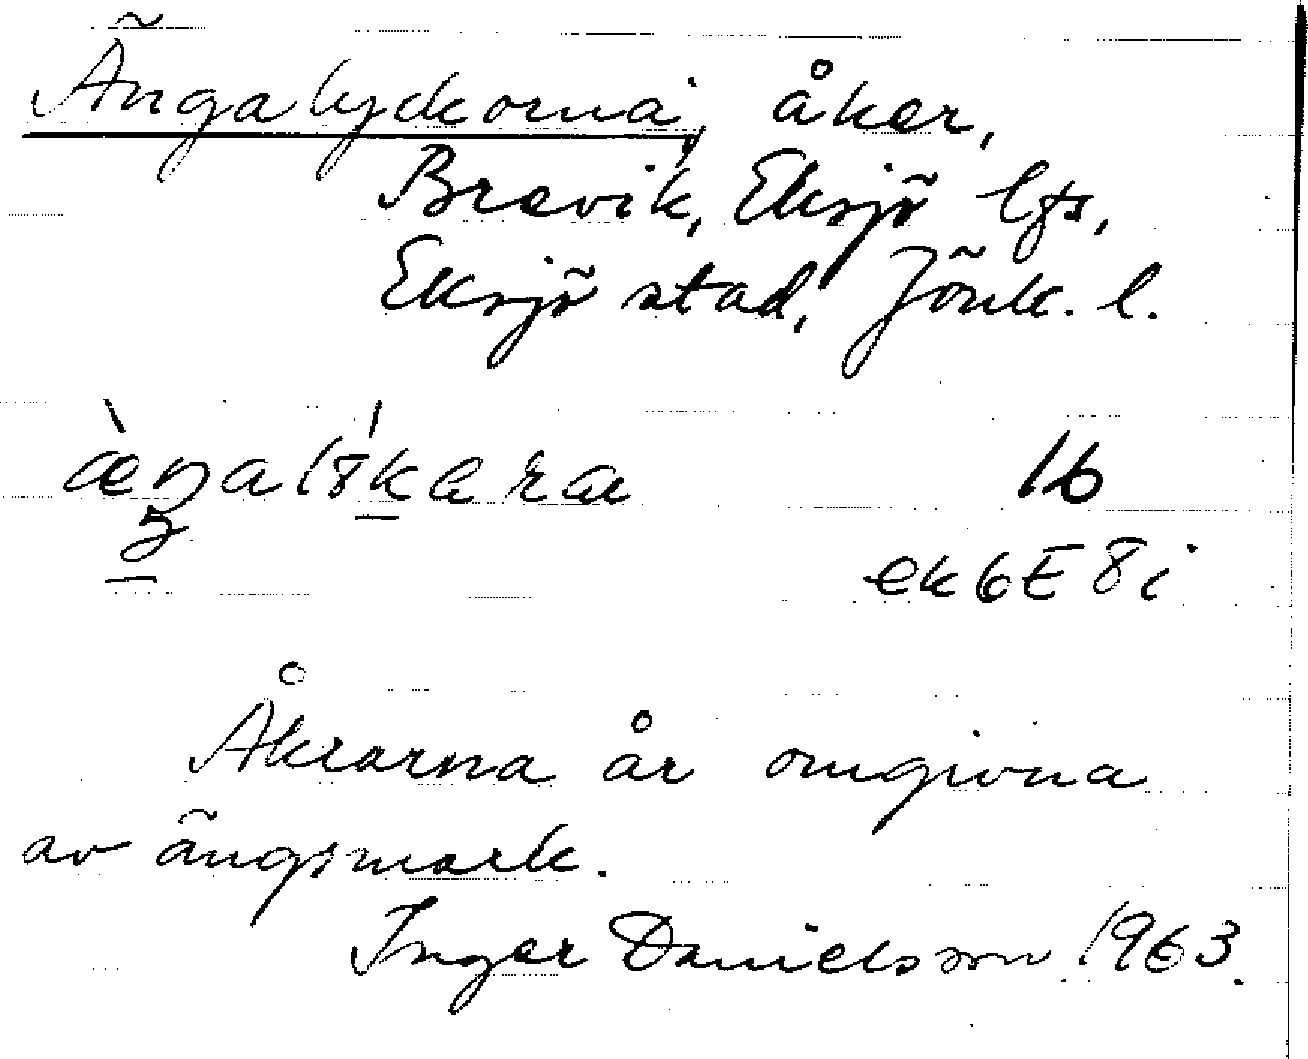 Ängalyckorna, åker,
Brevik, Eksjö lfs,
Eksjö stad, Jönk. l.
16
ek 6E 8i
Åkrarna är omgivna
av ängsmark.
Inger Danielsson 1963.